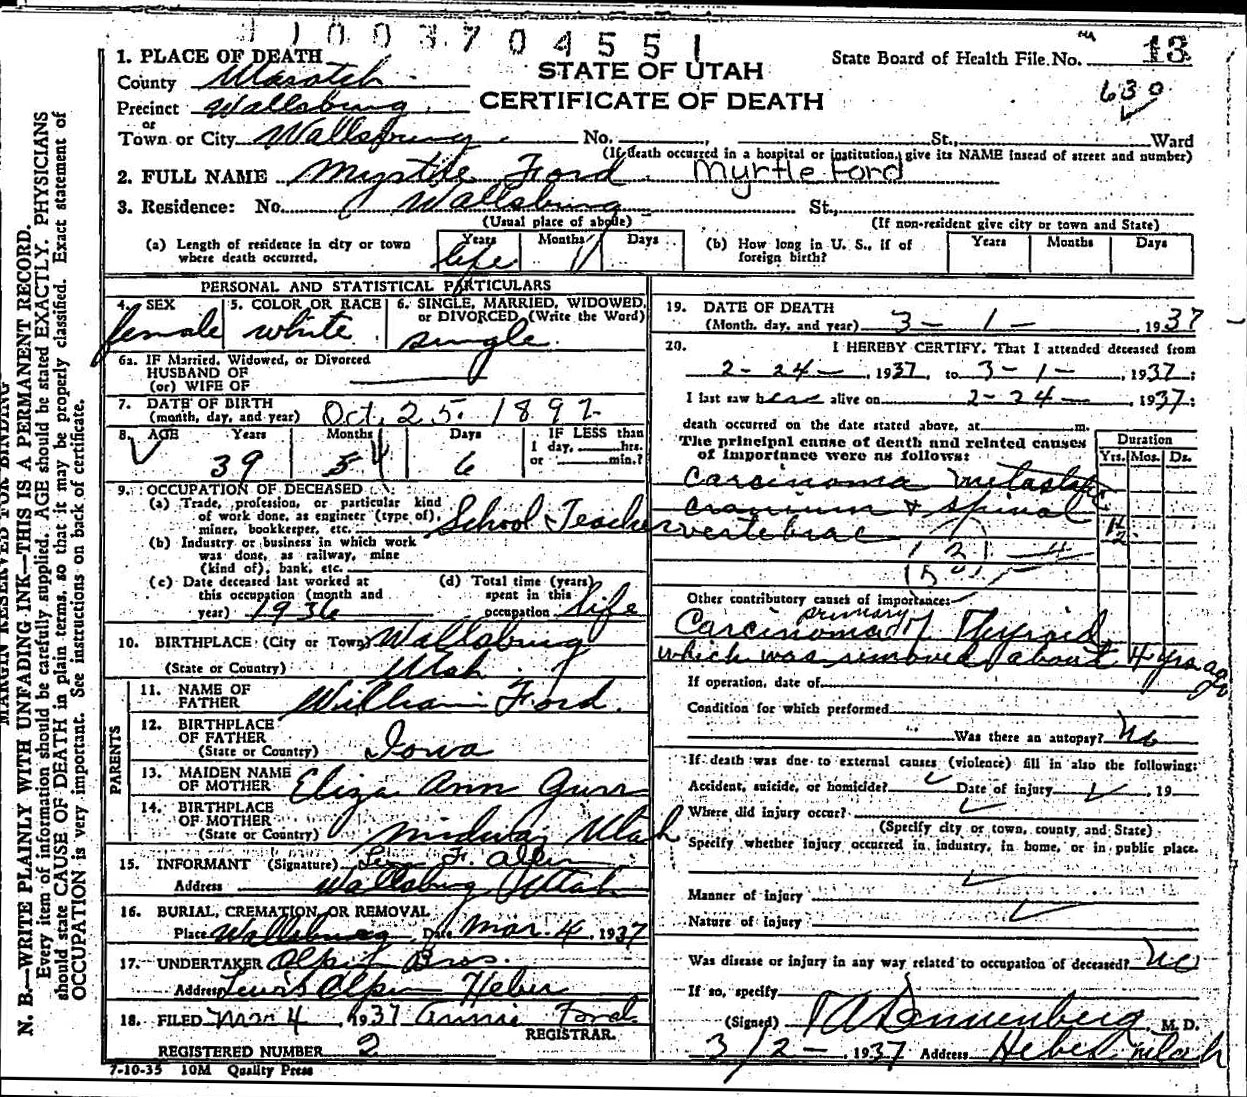 11003704551
1. PLACE OF DEATH
State Board of Health File No. 13
STATE OF UTAH
County Wasatch
630
CERTIFICATE OF DEATH
Precinct Wallsburg
or
Town or City Wallsburg No. St., Ward
(If death occurred in a hospital or institution, give its NAME insead of street and number)
2. FULL NAME Myrtle Ford Myrtle Ford
3. Residence: No. Wallsburg St.,
(Usual place of abode) (If non-resident give city or town and State)
(a) Length of residence in city or town where death occurred. Years life Months Days
(b) How long in U. S., if of foreign birth? Years Months Days
PERSONAL AND STATISTICAL PARTICULARS
4. SEX female
5. COLOR OR RACE white
6. SINGLE, MARRIED, WIDOWED, or DIVORCED (Write the Word) single
6a. IF Married, Widowed, or Divorced
HUSBAND OF
(or) WIFE OF
7. DATE OF BIRTH
(month, day, and year) Oct. 25. 1897
8. AGE Years 39 Months 5 4 Days 6 IF LESS than 1 day, hrs. or min.?
9. OCCUPATION OF DECEASED
(a) Trade, profession, or particular kind of work done, as engineer (type of), miner, bookkeeper, etc. School Teacher
(b) Industry or business in which work was done, as railway, mine (kind of), bank, etc.
(c) Date deceased last worked at this occupation (month and year) 1936
(d) Total time (years) spent in this occupation life
10. BIRTHPLACE (City or Town) Wallsburg
(State or Country) Utah
PARENTS
11. NAME OF FATHER William Ford
12. BIRTHPLACE OF FATHER
(State or Country) Iowa
13. MAIDEN NAME OF MOTHER Eliza Ann Gurr
14. BIRTHPLACE OF MOTHER
(State or Country) Midway Utah
15. INFORMANT (Signature) F. Allen
Address Wallsburg Utah
16. BURIAL, CREMATION, OR REMOVAL
Place Wallsburg Date Mar. 4, 1937
17. UNDERTAKER Olpin Bros.
Address Lewis Olpin Heber
18. FILED Mar 4, 1937 Annie Ford
REGISTRAR.
REGISTERED NUMBER 2
7-10-35 10M Quality Press
19. DATE OF DEATH
(Month, day, and year) 3-1-, 1937
20. I HEREBY CERTIFY, That I attended deceased from
2-24-, 1937, to 3-1-, 1937;
I last saw h alive on 2-24-, 1937;
death occurred on the date stated above, at m.
The principal cause of death and related causes of importance were as follows:
Duration
Yrs. Mos. Ds.
Carcinoma metastatic
cranium & spinal
vertebrae 1 1/2
Other contributory causes of importance:
primary
Carcinoma of Thyroid
which was removed about 4 yrs ago
If operation, date of
Condition for which performed
Was there an autopsy? No
If death was due to external causes (violence) fill in also the following:
Accident, suicide, or homicide? Date of injury , 19
Where did injury occur?
(Specify city or town, county, and State)
Specify whether injury occurred in industry, in home, or in public place.
Manner of injury
Nature of injury
Was disease or injury in any way related to occupation of deceased? No
If so, specify
(Signed) Dannenberg M. D.
3/2-, 1937 Address Heber Utah
MARGIN RESERVED FOR BINDING
N. B.—WRITE PLAINLY WITH UNFADING INK—THIS IS A PERMANENT RECORD.
Every item of information should be carefully supplied. AGE should be stated EXACTLY. PHYSICIANS
should state CAUSE OF DEATH in plain terms, so that it may be properly classified. Exact statement of
OCCUPATION is very important. See instructions on back of certificate.